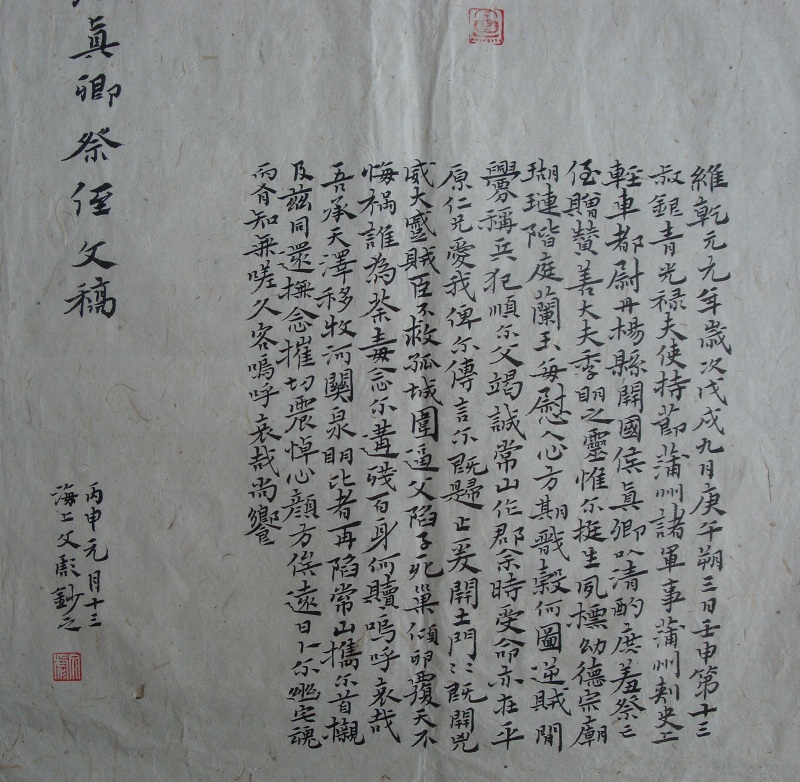 維乾元元年歲次戊戌九月庚午朔三日壬申第十三
叔銀青光禄夫使持節蒲州諸軍事蒲州刺史上
輕車都尉丹楊縣開國侯真卿以清酌庶羞祭亡
侄贈贊善大夫季明之靈惟尔挺生夙標幼德宗廟
瑚璉階庭蘭玉每慰人心方期戩穀何圖逆賊閒
釁稱兵犯順尔父竭誠常山作郡余時受命亦在平
原仁兄愛我俾尔傳言尔既歸止爰開土門土門既開兇
威大蹙賊臣不救孤城圍逼父陷子死巢傾卵覆天不
悔禍誰為荼毒念尔遘殘百身何贖嗚呼哀哉
吾承天澤移牧河關泉明比者再陷常山携尔首櫬
及茲同還撫念摧切震悼心顏方俟遠日卜尔幽宅魂
而有知無嗟久客嗚呼哀哉尚饗
真卿祭侄文稿
丙申元月十三
海上文彪鈔之